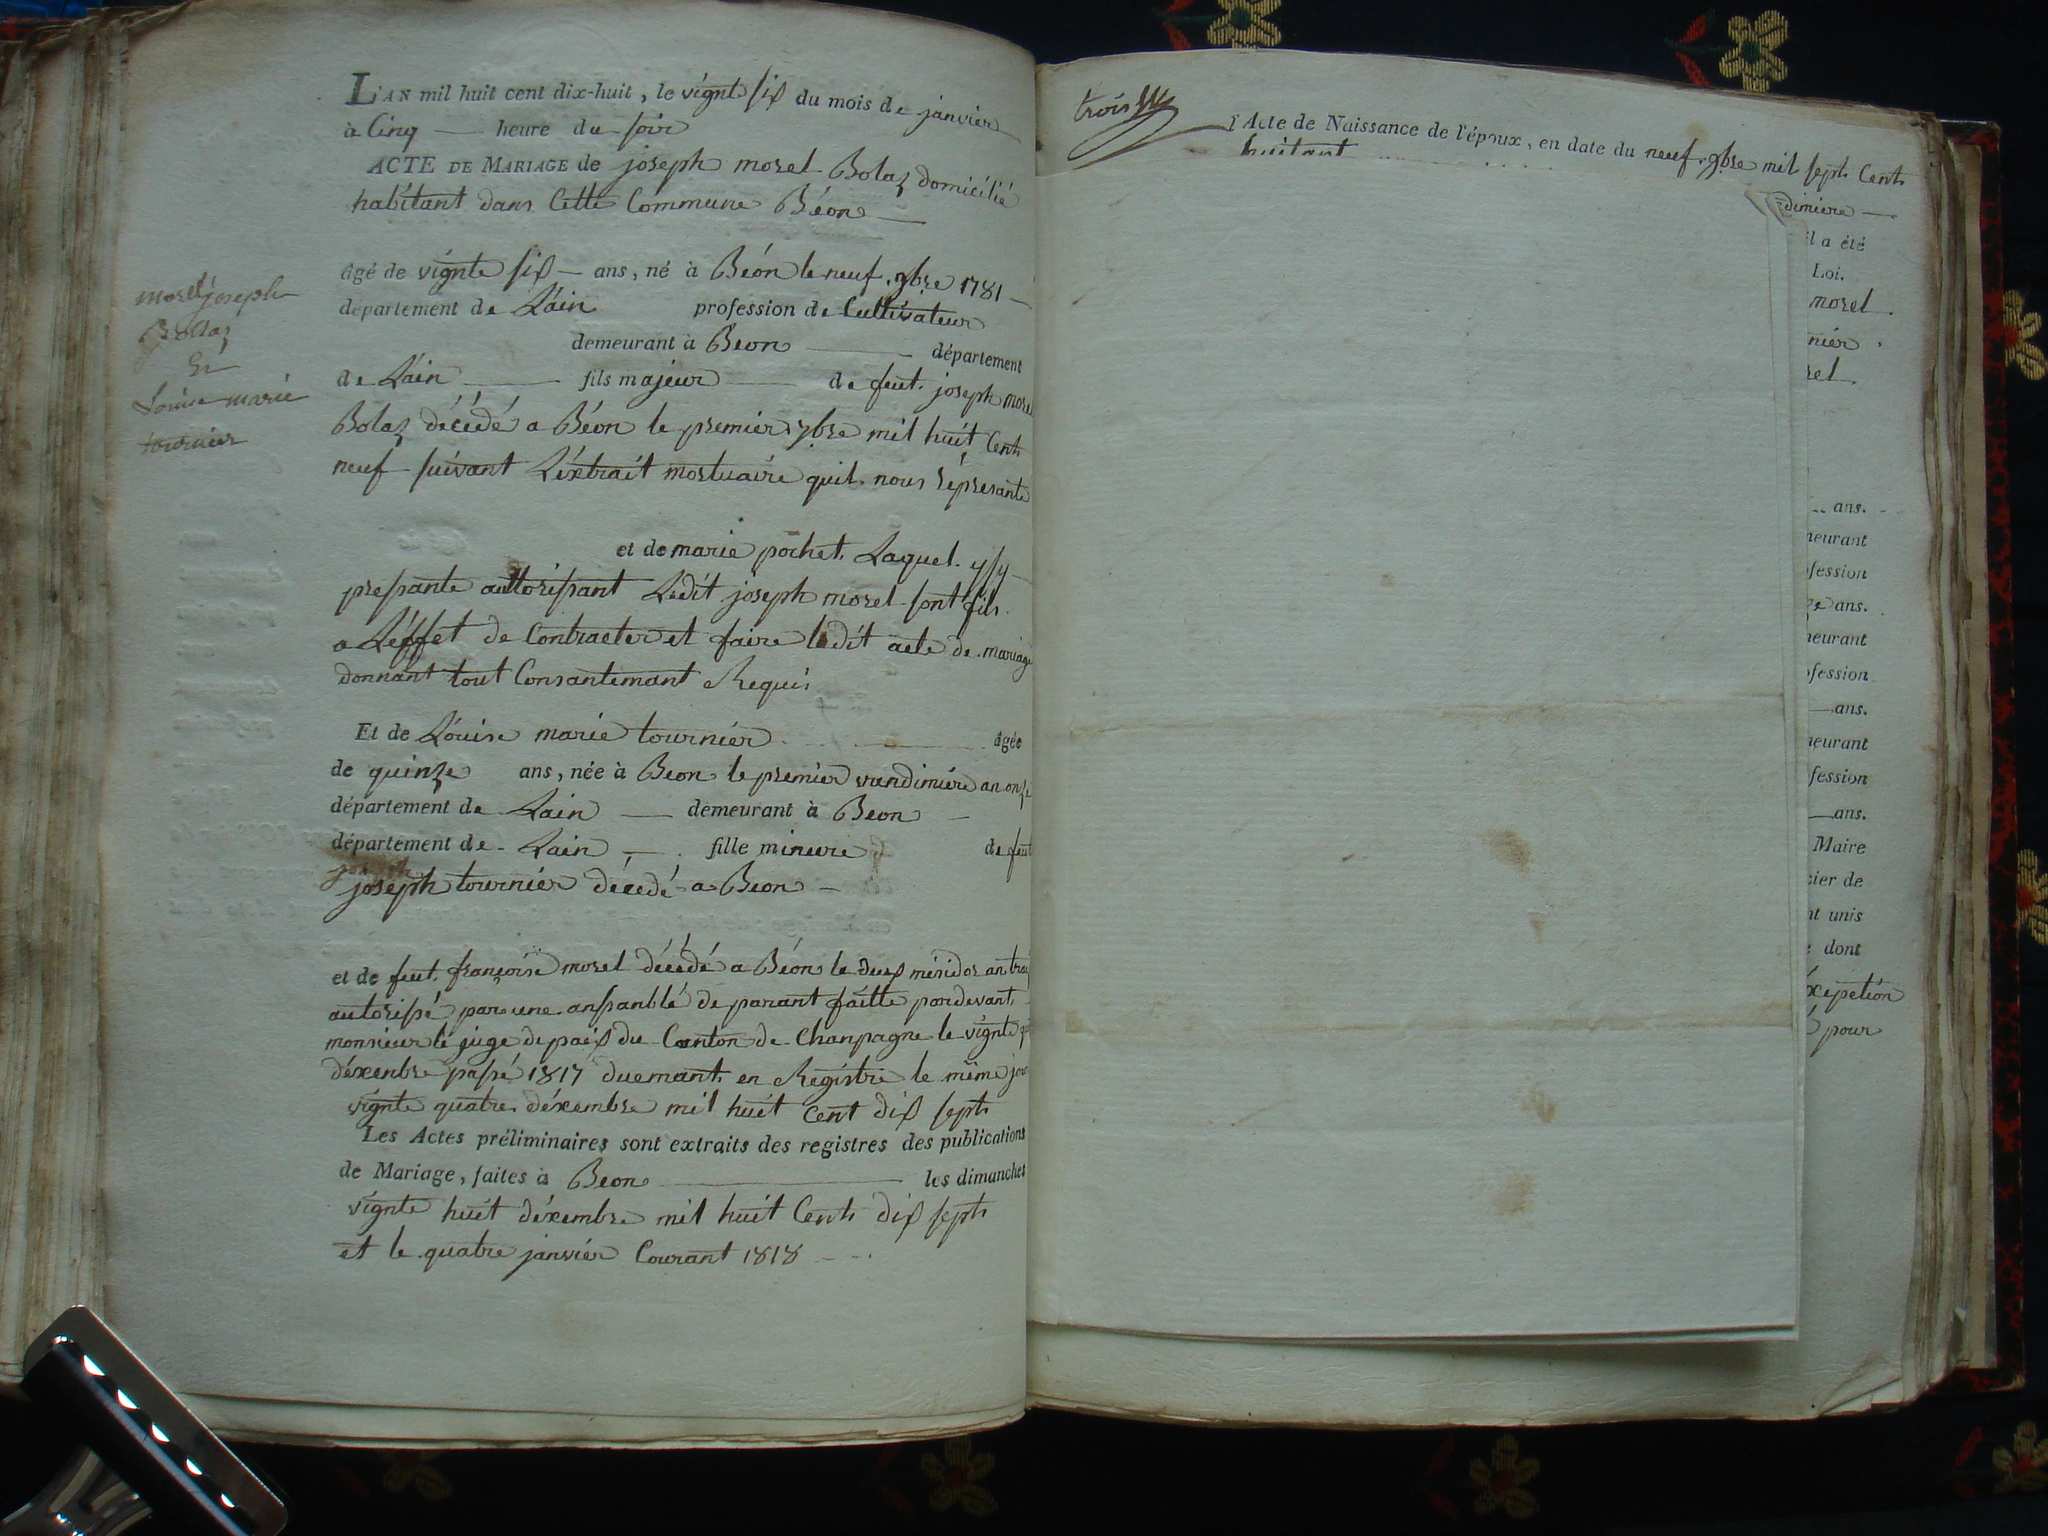 L'AN mil huit cent dix-huit, le vignte six du mois de janvier
à Cinq heure du soir
ACTE DE MARIAGE de joseph morel Bolaz domicilié
habitant dans Cette Commune Béon
âgé de vignte six ans, né à Béon le neuf 9bre 1781
département de L'ain profession de Cultivateur
demeurant à Béon département
de L'ain fils majeur de feut joseph morel
Bolaz décédé a Béon le premier 7bre mil huit Cent
neuf suivant L'éxtrait mortuaire quil nous réprésante
et de marie pochet Laquel ysy
pressante auttorissant Ledit joseph morel sont fils
a L'éffet de Contracter et faire ledit acte de mariage
donnant tout Consantemant Requis
morel joseph
Bolaz
Et
Louise marie
tournier
Et de Louise marie tournier âgée
de quinze ans, née à Beon le premier vandimiére an onze
département de Lain demeurant à Beon
département de Lain fille mineure de feut
joseph
joseph tournier décedé a Beon
et de feut françoise morel décedé a Béon le deux méridor an
autorisé par une anssanblé de parant faitte pardevant
monsieur le juge de paix du Canton de Chanpagne le vignte
déxenbre passé 1817 duemant en Registré le même jour
vignte quatre déxembre mil huit cent dix sept
Les Actes préliminaires sont extraits des registres des publications
de Mariage, faites à Beon les dimanches
vignte huit déxembre mil huit Cent dix sept
et le quatre janvier Courant 1818
trois
l'Acte de Naissance de l'époux, en date du neuf 9bre mil sept Cent
huitant
dimiere
il a été
Loi.
morel
nier
rel
ans.
meurant
fession
ans.
meurant
fession
ans.
meurant
fession
ans.
Maire
cier de
nt unis
dont
éxepetión
pour